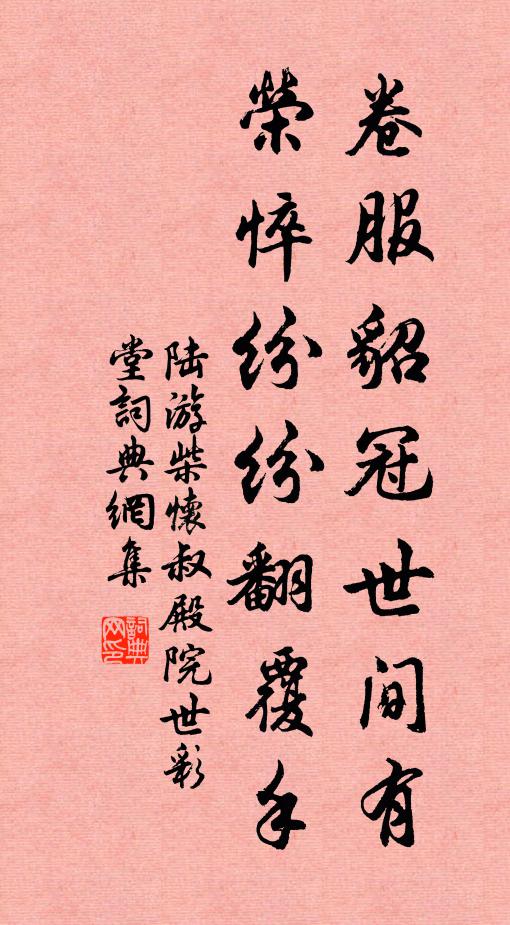 卷服貂冠世间有
榮悴纷纷翻覆手
陆游柴懷叔殿院世彩
堂詞典網集
詞典
网印